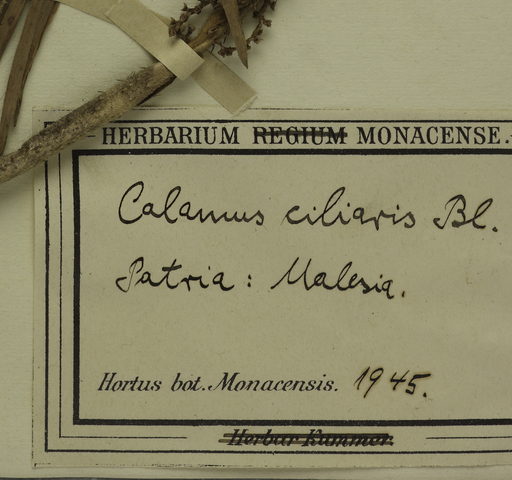 HERBARIUM REGIUM MONACENSE.
Calamus ciliaris Bl.
Patria: Malesia.
Hortus bot. Monacensis. 1945.
Herbar Kummer.